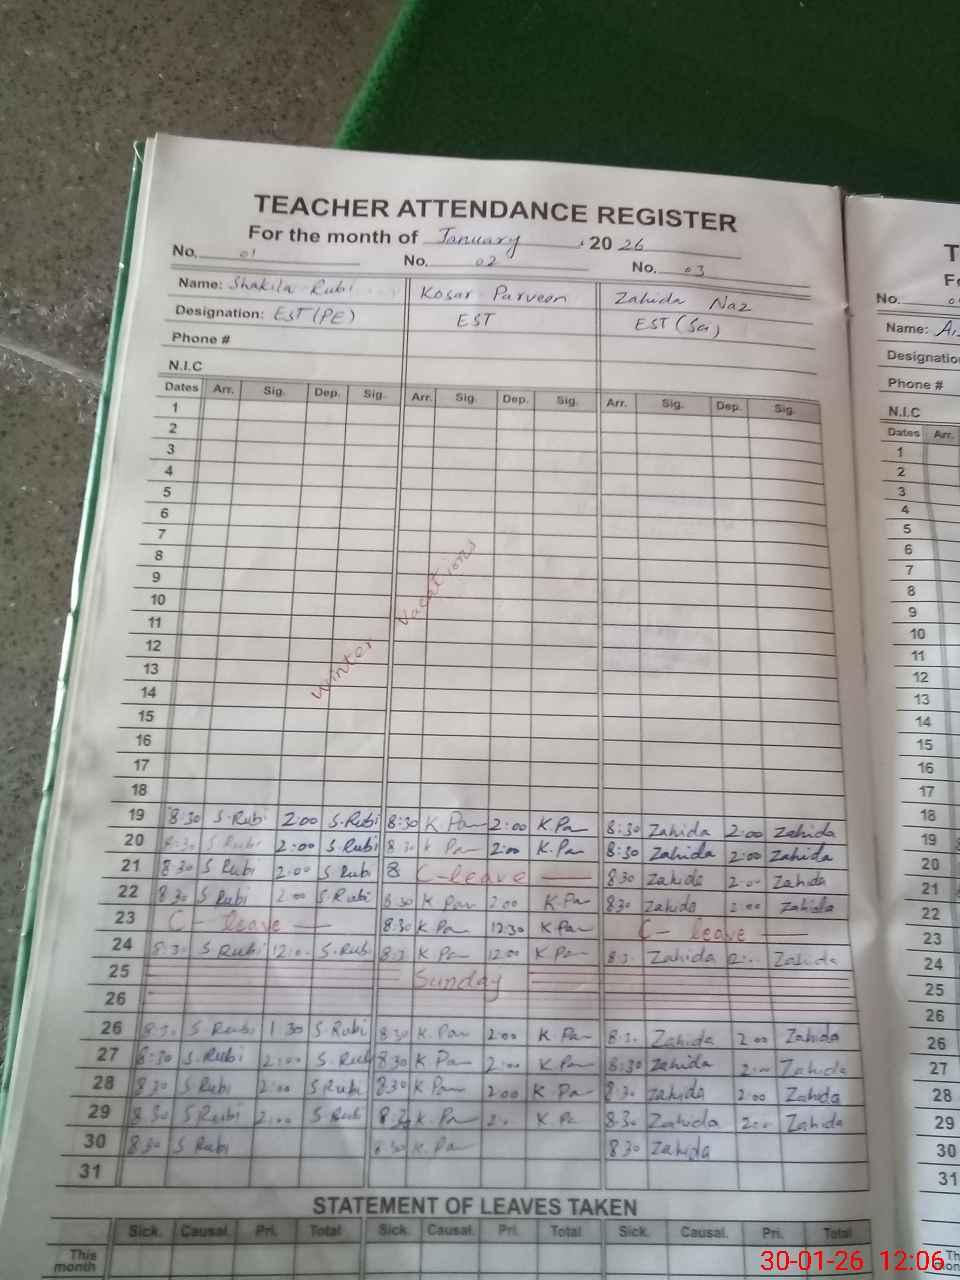 TEACHER ATTENDANCE REGISTER
For the month of January, 2026
No. 01 No. 02 No. 03
Name: Shakila Rubi Kosar Parveen Zahida Naz
Designation: EST (PE) EST EST (Sci)
Phone #
N.I.C
Dates Arr. Sig. Dep. Sig. Arr. Sig. Dep. Sig. Arr. Sig. Dep. Sig.
1
2
3
4
5
6
7
8
9
10
11
12
13
14
Winter Vacations
15
16
17
18
19 8:30 S.Rubi 2:00 S.Rubi 8:30 K Pa 2:00 K.Pa 8:30 Zahida 2:00 Zahida
20 8:30 S.Rubi 2:00 S.Rubi 8 30 K Pa 2:00 K.Pa 8:30 Zahida 2:00 Zahida
21 8 30 S Rubi 2:00 S Rubi 8 C-leave 8 30 Zahida 2:00 Zahida
22 8.30 S Rubi 2:00 S.Rubi 8 30 K Pa 2 00 K.Pa 8 30 Zahida 2:00 Zahida
23 C- leave 8:30 K Pa 12:30 K Pa C- leave
24 8:30 S Rubi 12:00 S.Rubi 8:3 K Pa 12 00 K Pa 8:3 Zahida 2:00 Zahida
25 Sunday
26
26 8:30 S Rubi 1 30 S Rubi 8 30 K. Pa 2:00 K. Pa 8:3 Zahida 2:00 Zahida
27 8:30 S.Rubi 2:00 S.Rubi 8 30 K. Pa 2:00 K. Pa 8:30 Zahida 2:00 Zahida
28 8 30 S Rubi 2:00 S Rubi 8 30 K Pa 2:00 K Pa 8:30 Zahida 2:00 Zahida
29 8.30 S Rubi 2:00 S Rubi 8:30 K. Pa 2: K. Pa 8:30 Zahida 2:00 Zahida
30 8:30 S Rubi 8 30 K. Pa 8 30 Zahida
31
STATEMENT OF LEAVES TAKEN
Sick. Causal. Pri. Total Sick. Causal. Pri. Total Sick. Causal. Pri. Total
This month
No.
Name:
Designatio
Phone #
N.I.C
Dates Arr.
1
2
3
4
5
6
7
8
9
10
11
12
13
14
15
16
17
18
19
20
21
22
23
24
25
26
26
27
28
29
30
31
30-01-26 12:06